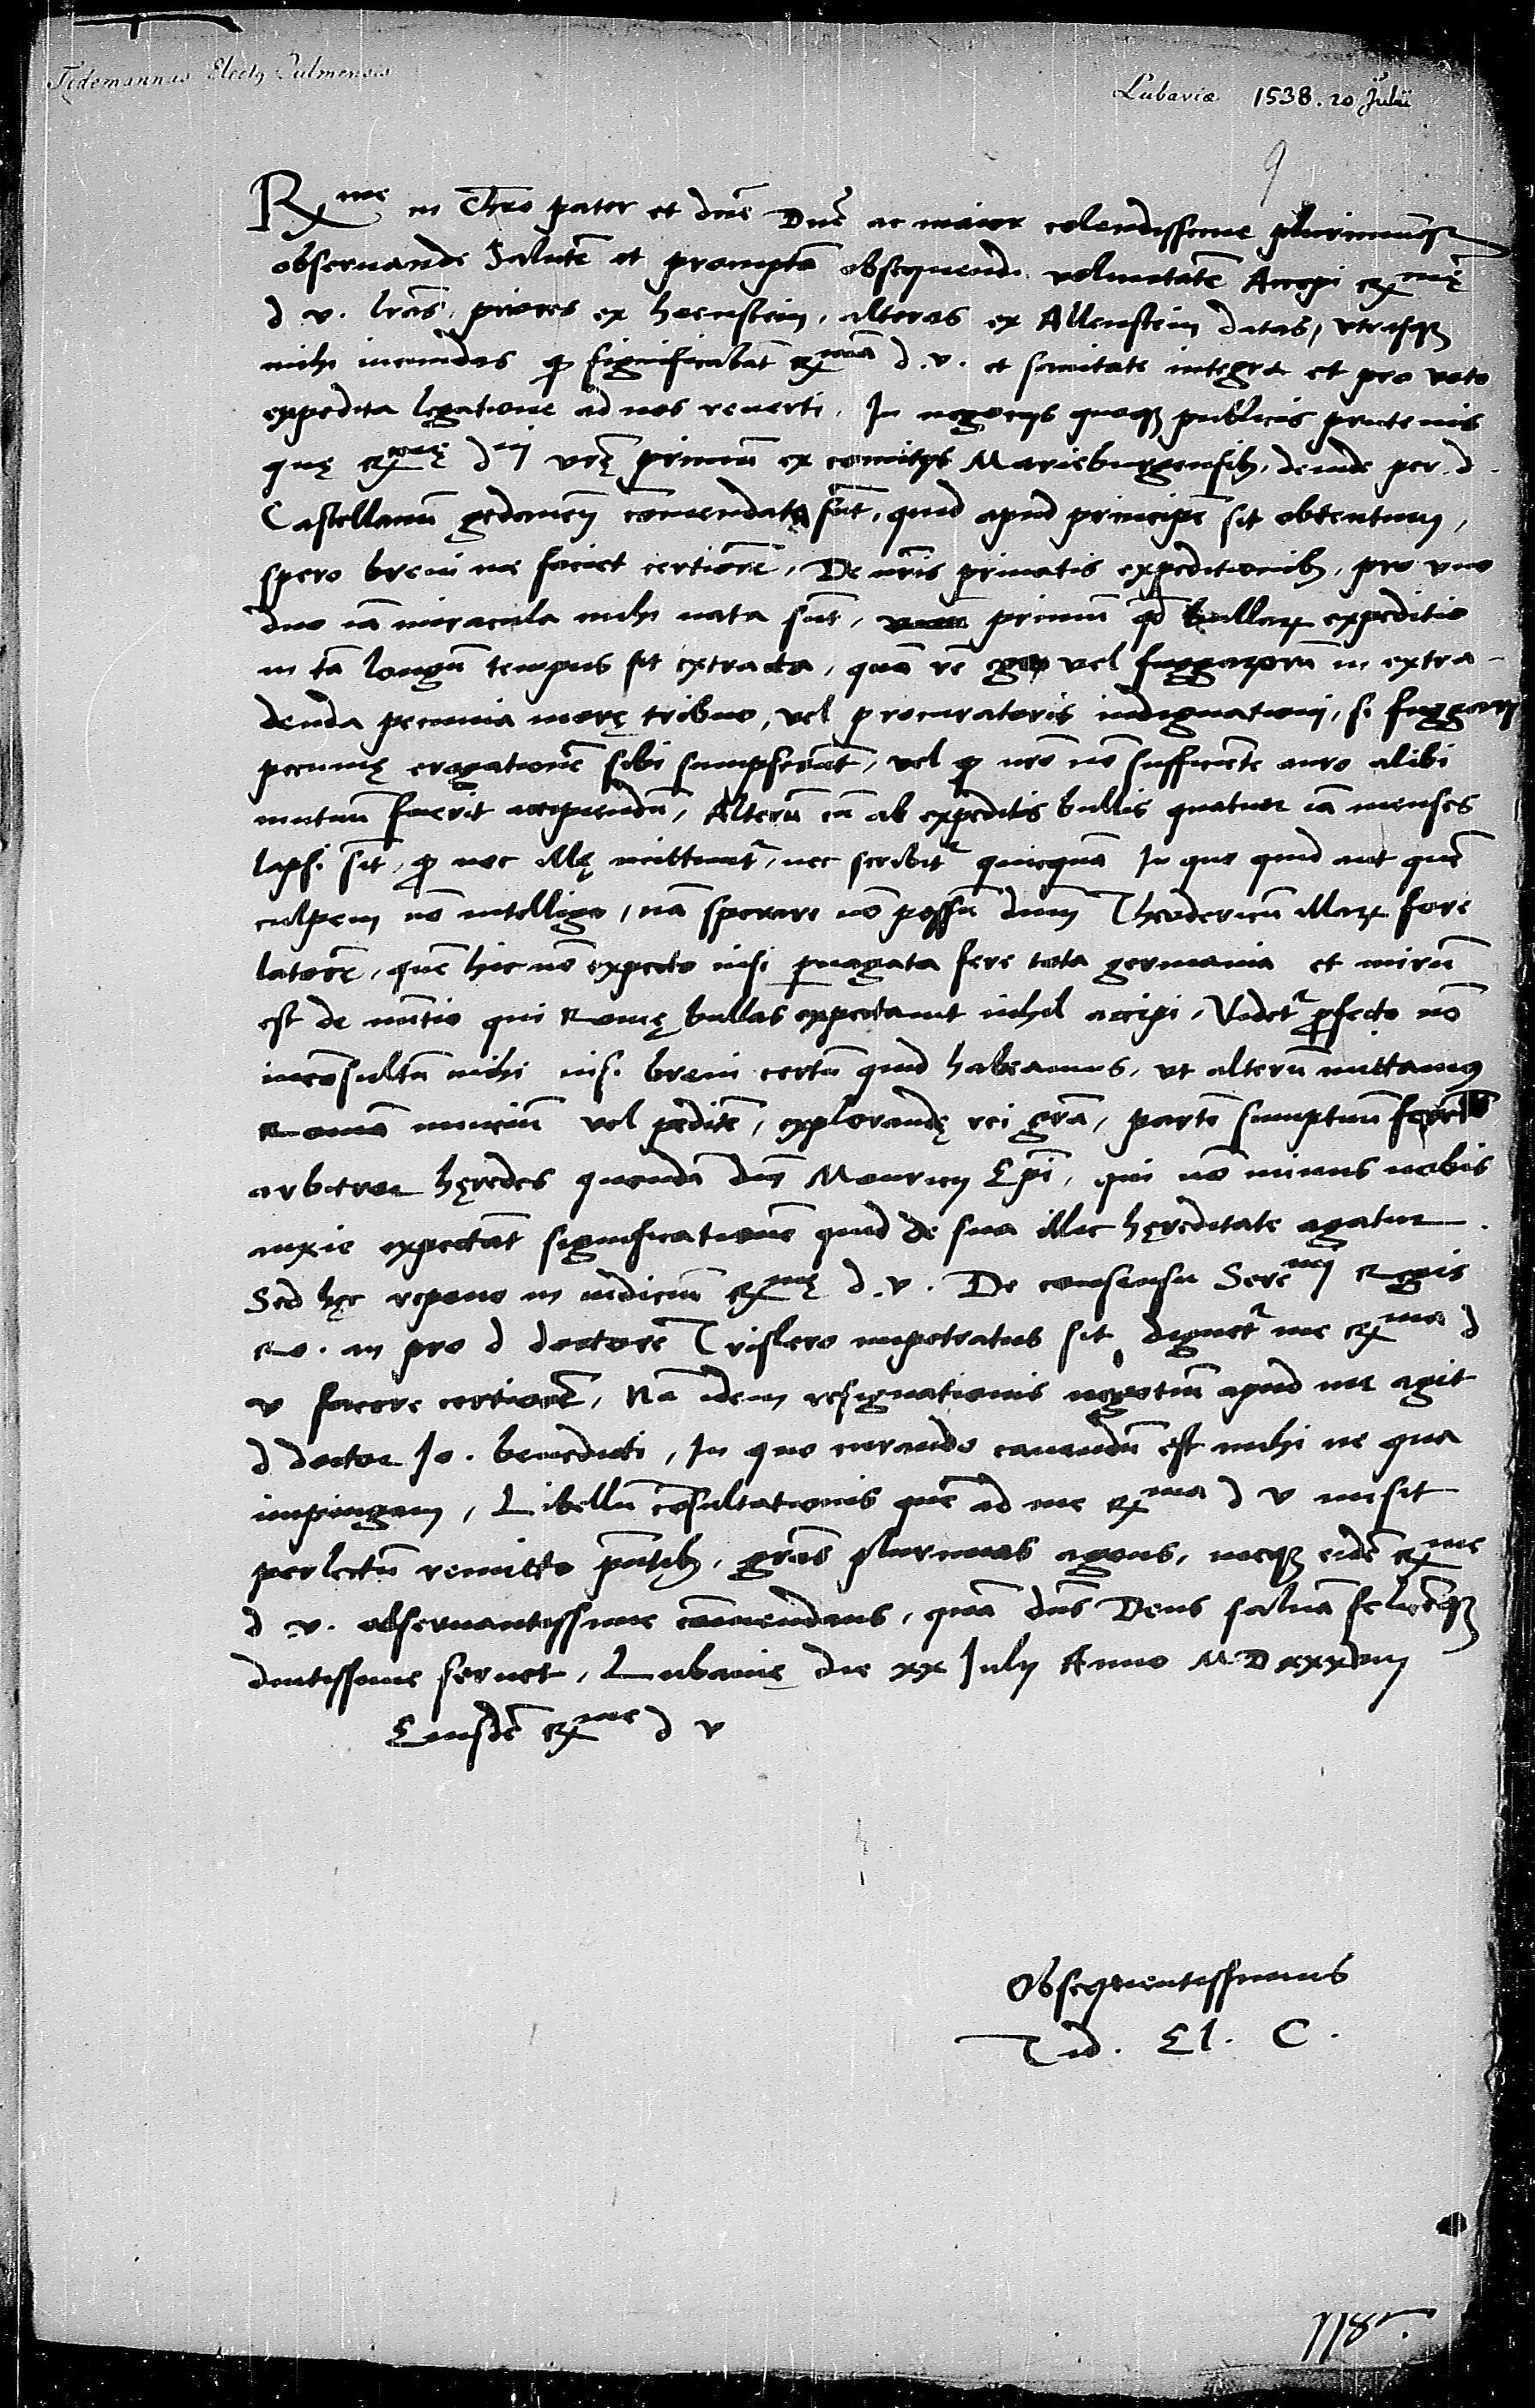 Tidemannus Electus Culmensis
Lubaviæ 1538. 20 Julii
9
Rme in Chro pater et dne Dne ac maior colendissime plurimumque
observande Salutem et promptam obsequendi voluntatem Accepi Rme
d v. lras, priores ex hoenstein, alteras ex Allenstein datas, utrasque
mihi iucundas quod significabant Rmam d. v. et sanitate integra et pro voto
expedita legatione ad nos reverti. In negocijs quoque publicis prutenis
quę Rmę dnj vrę primum ex comitijs Marieburgensibus, deinde per d.
Castellanum gedanen comendata sunt, quid apud principem sit obtentum,
spero brevi me faciet certiorem. De nris privatis expeditionibus, pro uno
duo iam miracula mihi nata sunt, primum quod bullarum expeditio
in tam longum tempus sit extracta, quam rem ego vel fuggarorum in extra-
denda pecunia morę tribuo, vel procuratoris indignationi, si fuggari
pecunię erogationem sibi sumpserant, vel quod nro non sufficiente auro alibi
mutuum fuerit accipiendum, Alterum cum ab expeditis bullis quatuor iam menses
lapsi sint, quod nec illę mittuntur, nec scribitur quicquam In quo quid aut quem
culpem non intelligo, nam sperare non possum dnum Theodericum illarum fore
latorem, quem hic non expecto nisi pervagata fere tota germania et mirum
est de nuntio qui Romę bullas expectavit nihil accipi, Videtur profecto non
inconsultum mihi nisi brevi certum quid habeamus, ut alterum mittamus
Romam nuncium vel peditem, explorandę rei gra, partem sumptuum
arbitror hęredes quondam dni Mauricij Epi, qui non minus nobis
anxie expectant significationem quid de sua illic hęreditate agatur.
Sed hęc repono in iudicium Rmę d. v. De consensu Seremj Regis
Ro. an pro d doctore Trislero impetratus sit, dignetur me Rma d
v facere certiorem, Nam idem resignationis negotium apud me agit
d doctor Jo. benedicti, In quo curando cavendum est mihi ne qua
impingam, Libellum consultationis quem ad me Rma d v misit
perlectum remitto pntibus, gras plurimas agens, meque eidem Rme
d v. observantissime commendans, quam dns Deus salvam felicemque
diutissime servet, Lubavię die xx Julij Anno MDxxxviij
Eiusdem Rme d v
Obsequentissimus
Tid. El. C.
118.